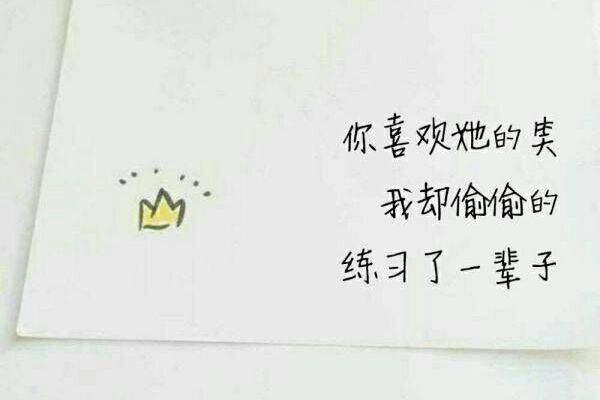 你喜欢她的美
我却偷偷的
练习了一辈子